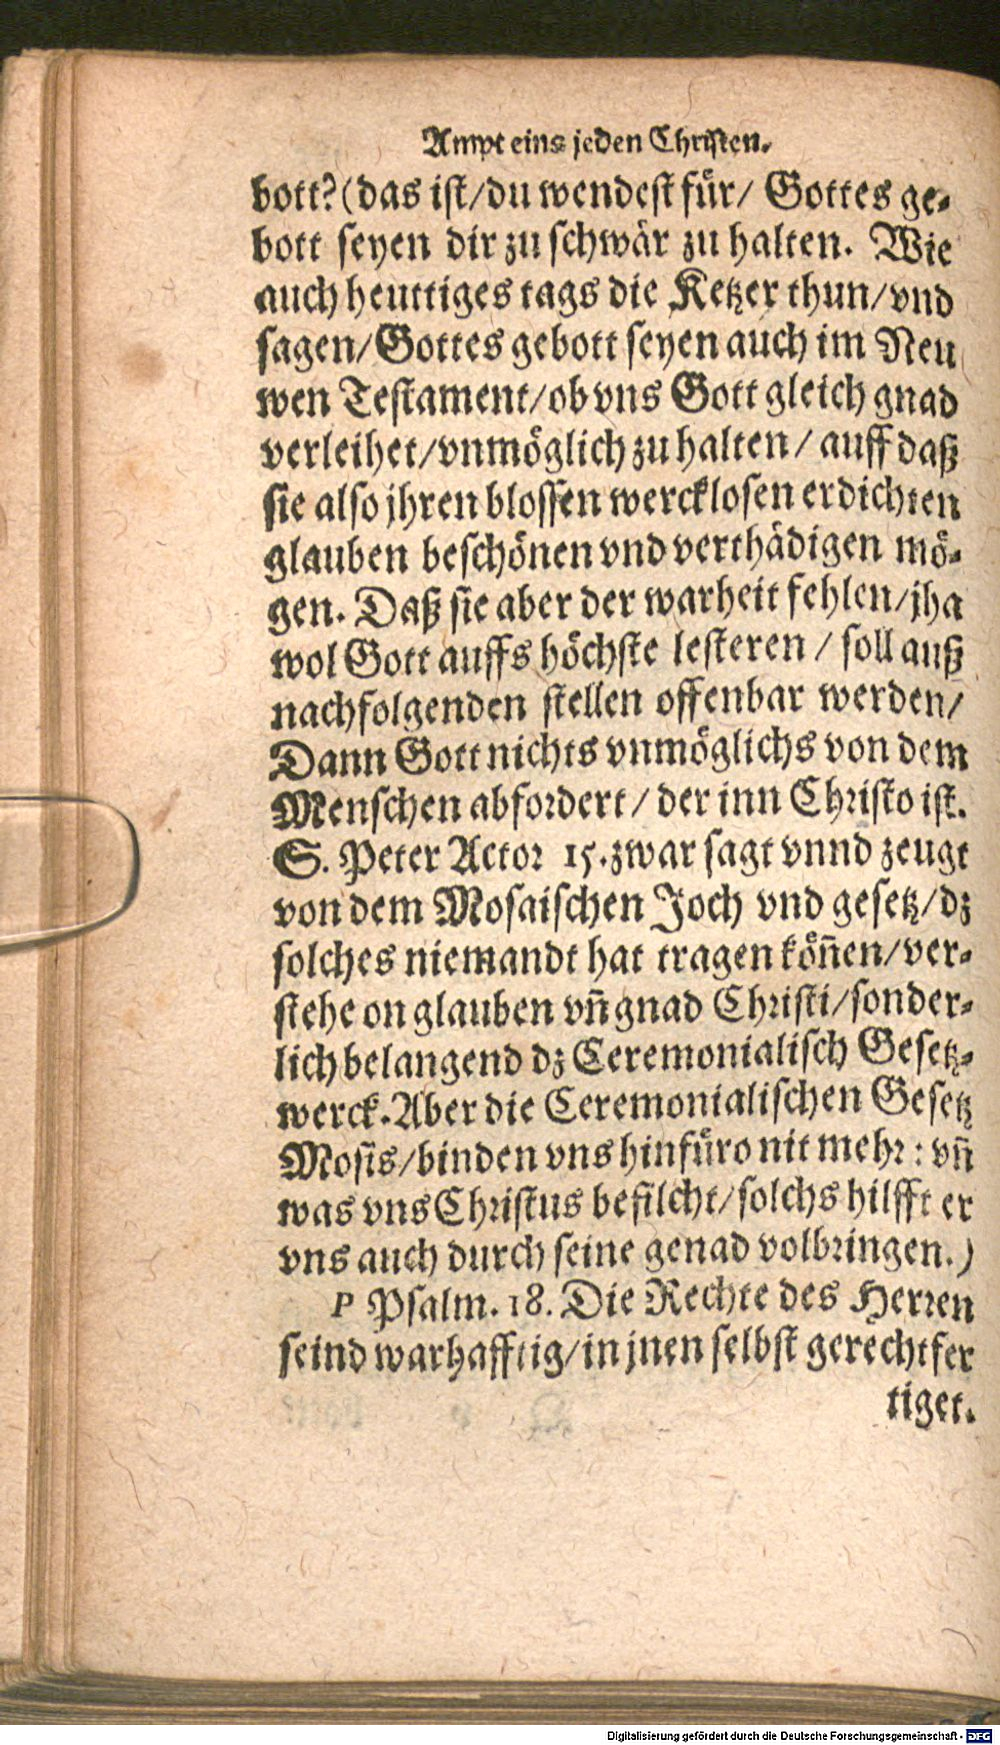 Ampt eins jeden Christen.
bott? (das ist/du wendest für/ Gottes ge-
bott seyen dir zu schwär zu halten. Wie
auch heuttiges tags die Ketzer thun/vnd
sagen/Gottes gebott seyen auch im Neu
wen Testament/ob vns Gott gleich gnad
verleihet/vnmöglich zu halten/ auff daß
sie also jhren blossen wercklosen erdichten
glauben beschönen vnd verthädigen mö-
gen. Daß sie aber der warheit fehlen/jha
wol Gott auffs höchste lesteren / soll auß
nachfolgenden stellen offenbar werden/
Dann Gott nichts vnmöglichs von dem
Menschen abfordert/ der inn Christo ist.
S. Peter Actor 15. zwar sagt vnnd zeugt
von dem Mosaischen Joch vnd gesetz/dz
solches niemandt hat tragen köñen/ver-
stehe on glauben vñ gnad Christi/sonder-
lich belangend dz Ceremonialisch Gesetz-
werck. Aber die Ceremonialischen Gesetz
Mosis/binden vns hinfüro nit mehr: vñ
was vns Christus befilcht/solchs hilfft er
vns auch durch seine genad volbringen.)
P Psalm. 18. Die Rechte des Herren
seind warhafftig/in jnen selbst gerechtfer
tiget.
Digitalisierung gefördert durch die Deutsche Forschungsgemeinschaft - DFG